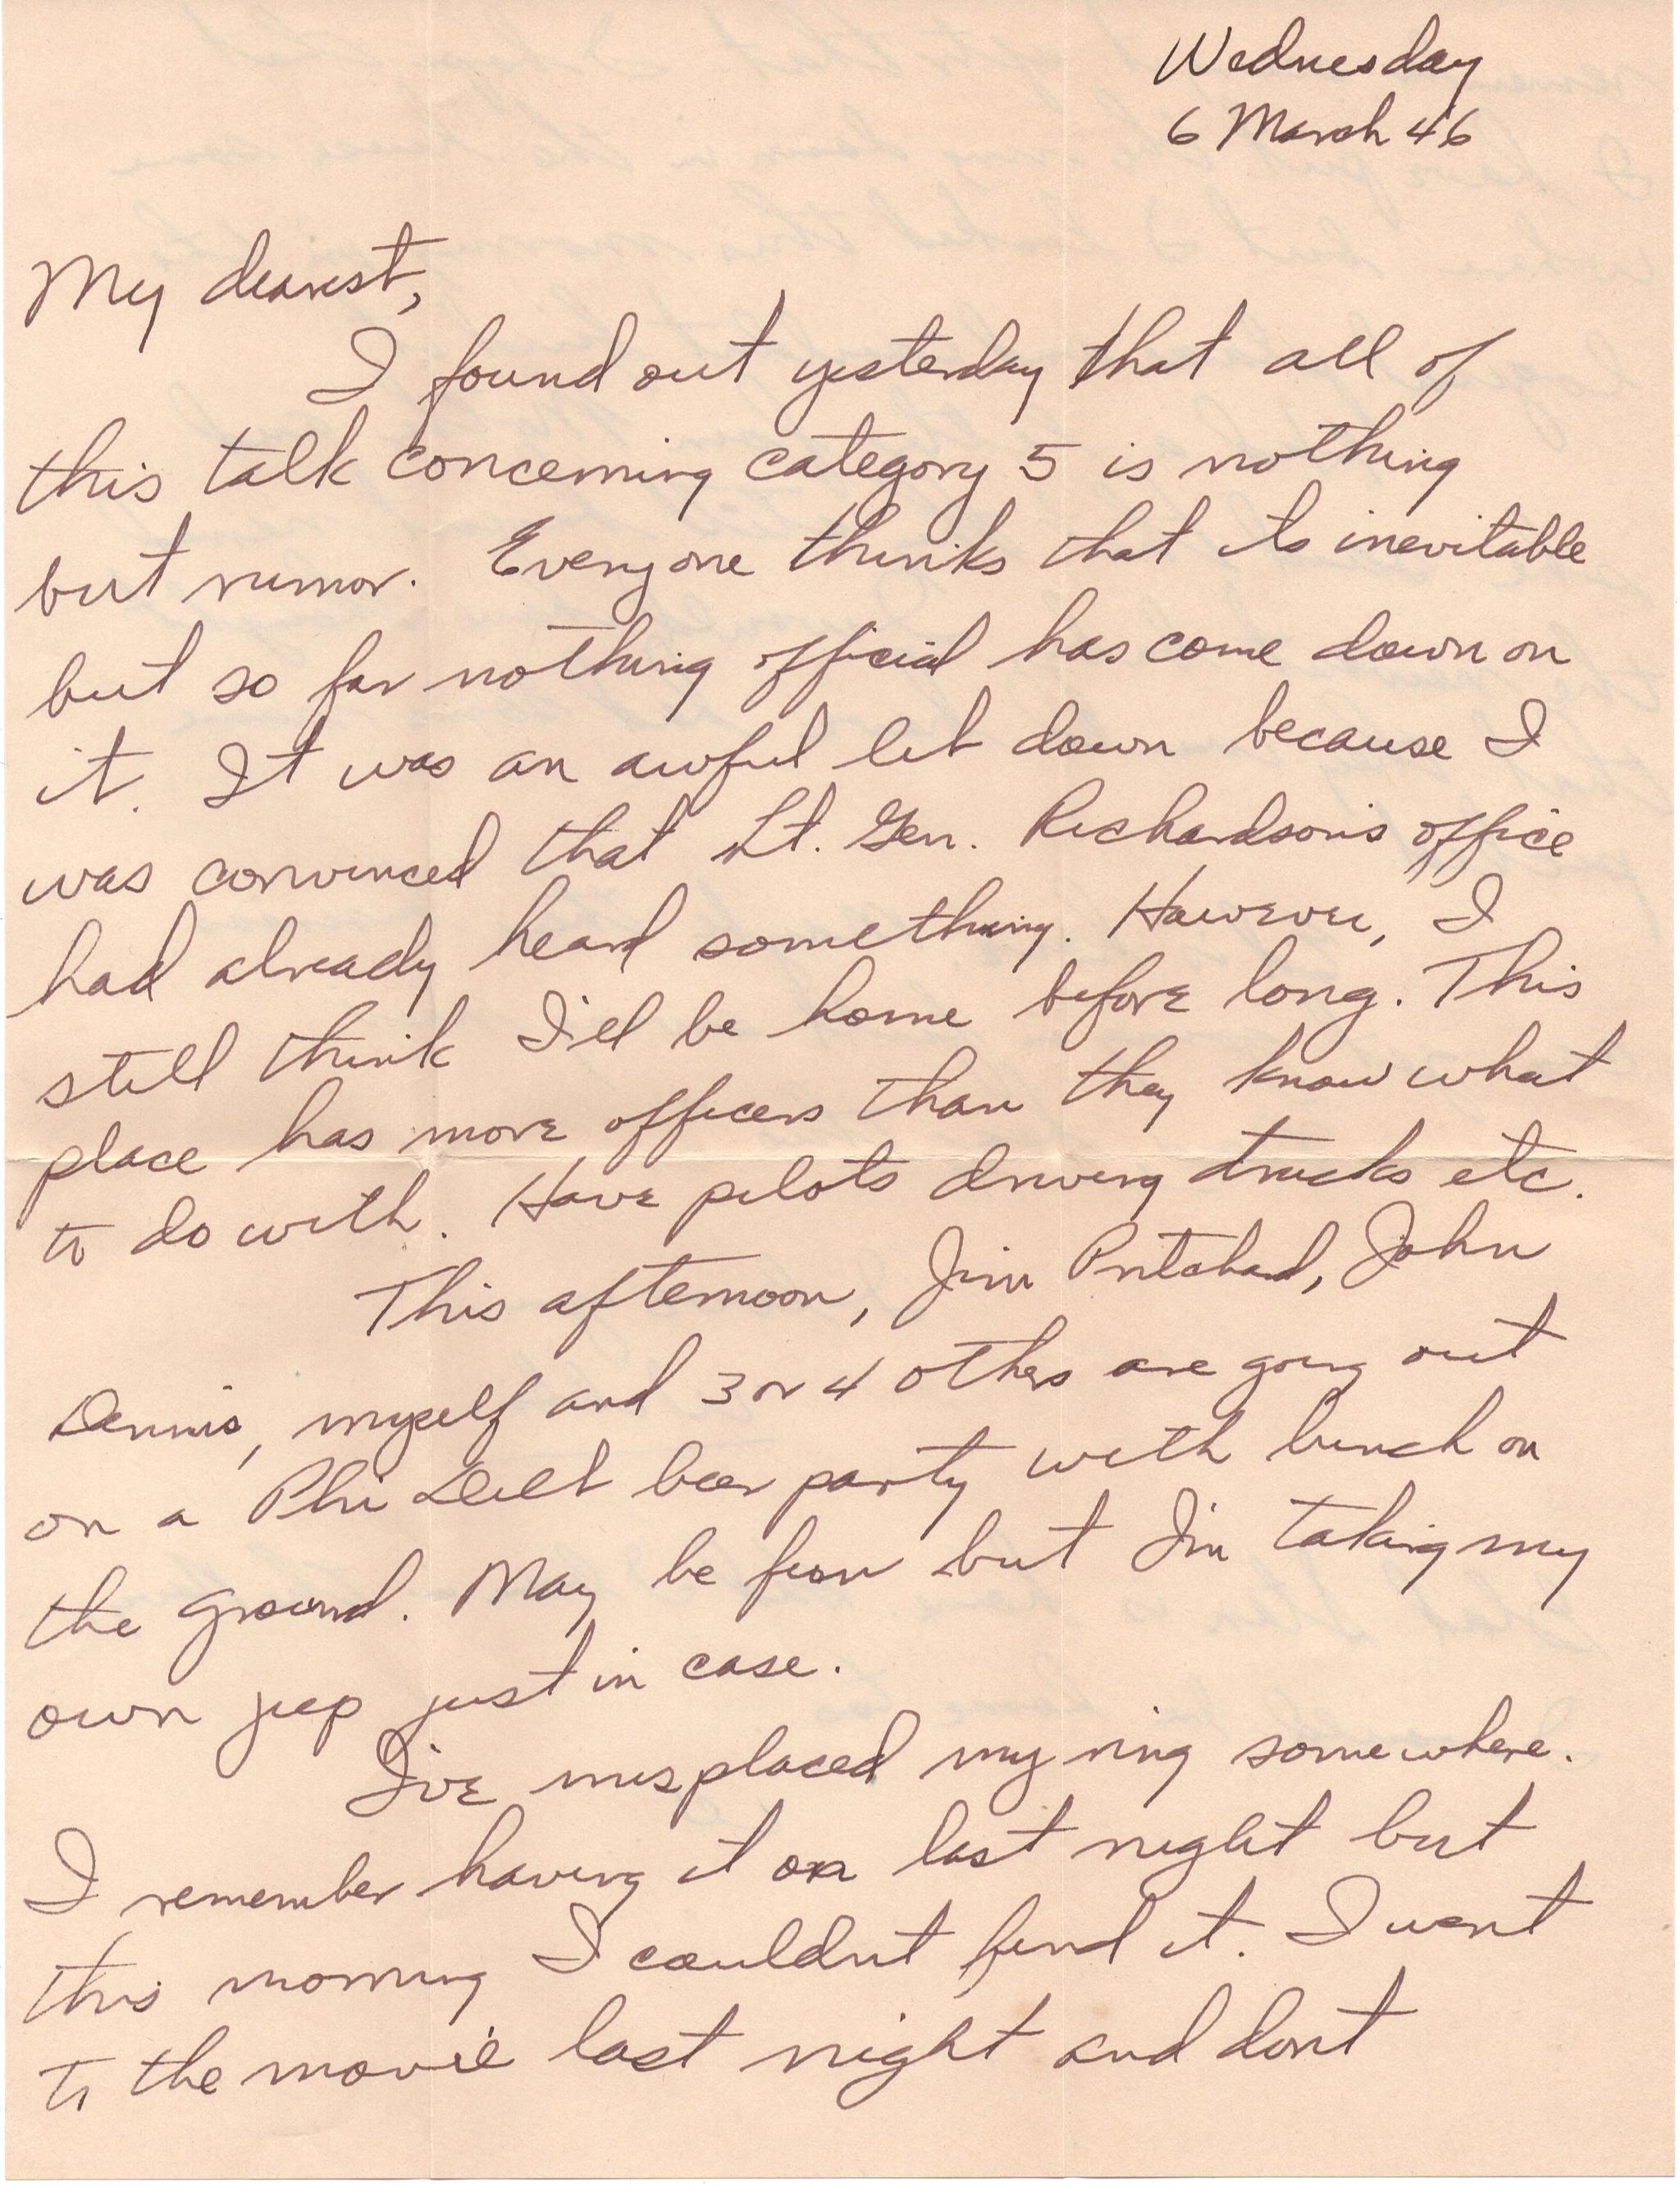 Wednesday
6 March 46
My dearest,
I found out yesterday that all of
this talk concerning category 5 is nothing
but rumor. Everyone thinks that its inevitable
but so far nothing official has come down on
it. It was an awful let down because I
was convinced that Lt. Gen. Richardson's office
had already heard something. However, I
still think I'll be home before long. This
place has more officers than they know what
to do with. Have pilots driving trucks etc.
This afternoon, Jim Pritchard, John
Dennis, myself and 3 or 4 others are going out
on a Phi Delt beer party with bunch on
the ground. May be fun but I'm taking my
own jeep just in case.
I've misplaced my ring somewhere.
I remember having it on last night but
this morning I couldnt find it. I went
to the movie last night and dont